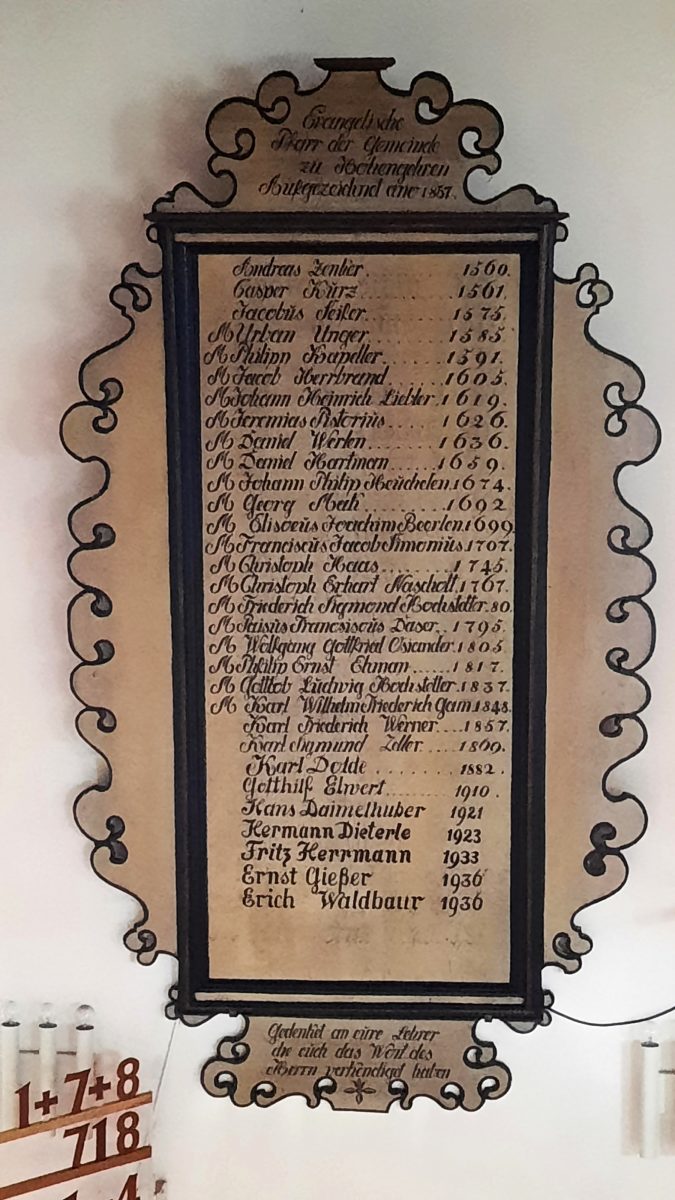 Evangelische
Pfarr der Gemeinde
zu Hohengehren
Aufgezeichnd ano 1857.
Andreas Zenlier. 1560.
Casper Kurz 1561.
Jacobus Feißer 1575.
M Urban Unger 1585.
M Philipp Kapeller 1591.
M Jacob Herrbrand 1605.
M Johann Heinrich Liebler. 1619.
M Jeremias Pistorius 1626.
M Daniel Werlen 1636.
M Daniel Hartman 1659.
M Johann Philip Heuchelen. 1674.
M Georg Math 1692
M Elisoeus Joachim Beerlen. 1699.
M Franciscus Jacob Simonius. 1707.
M Christoph Haas 1745.
M Christoph Erhart Nascholt. 1767.
M Friederich Sigmond Hochstetter. 80.
M Paisus Francsiscus Daser. 1795.
M Wolfgang Gottfried Osiander. 1805
M Philip Ernst Ehman 1817.
M Gottlob Ludwig Hochstetter. 1837.
M Karl Wilhelm Friederich Gam. 1848.
Karl Friederich Werner 1857.
Karl Sigmund Zeller 1869.
Karl Dolde 1882.
Gotthilf Elwert 1910.
Hans Daimelhuber 1921
Hermann Dieterle 1923
Fritz Herrmann 1933
Ernst Gießer 1936
Erich Waldbaur 1936
Gedenket an eure Lehrer
die euch das Wort des
Herrn verkündiget haben
1+7+8
718
4